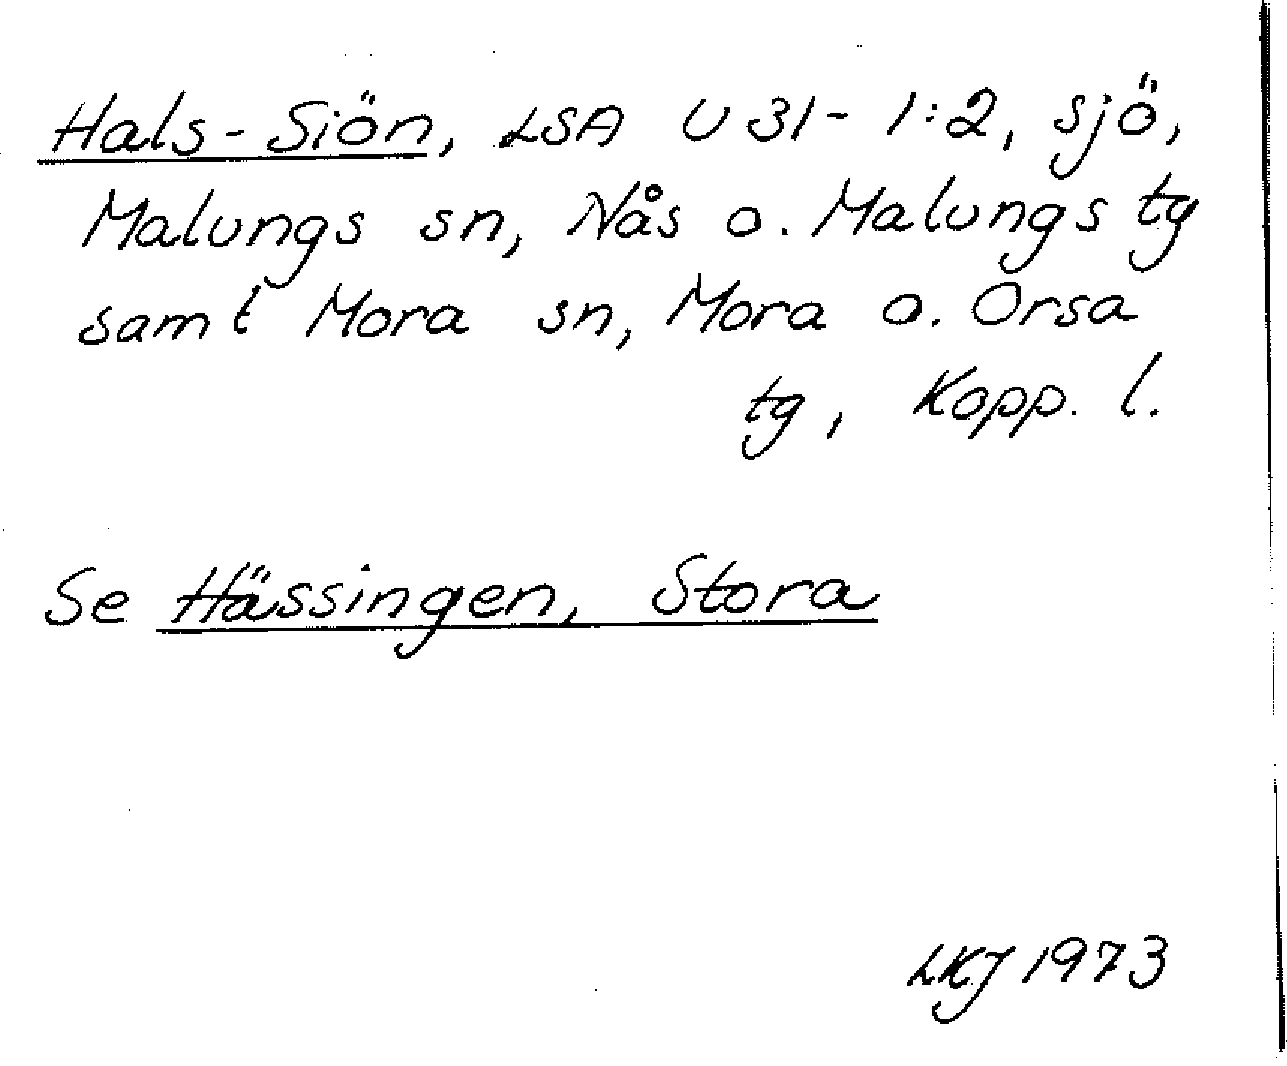 Hals-Siön, LSA U 31-1:2, sjö,
Malungs sn, Nås o. Malungs tg
samt Mora sn, Mora o. Orsa
tg, Kopp. l.
Se Hässingen, Stora
LKJ 1973